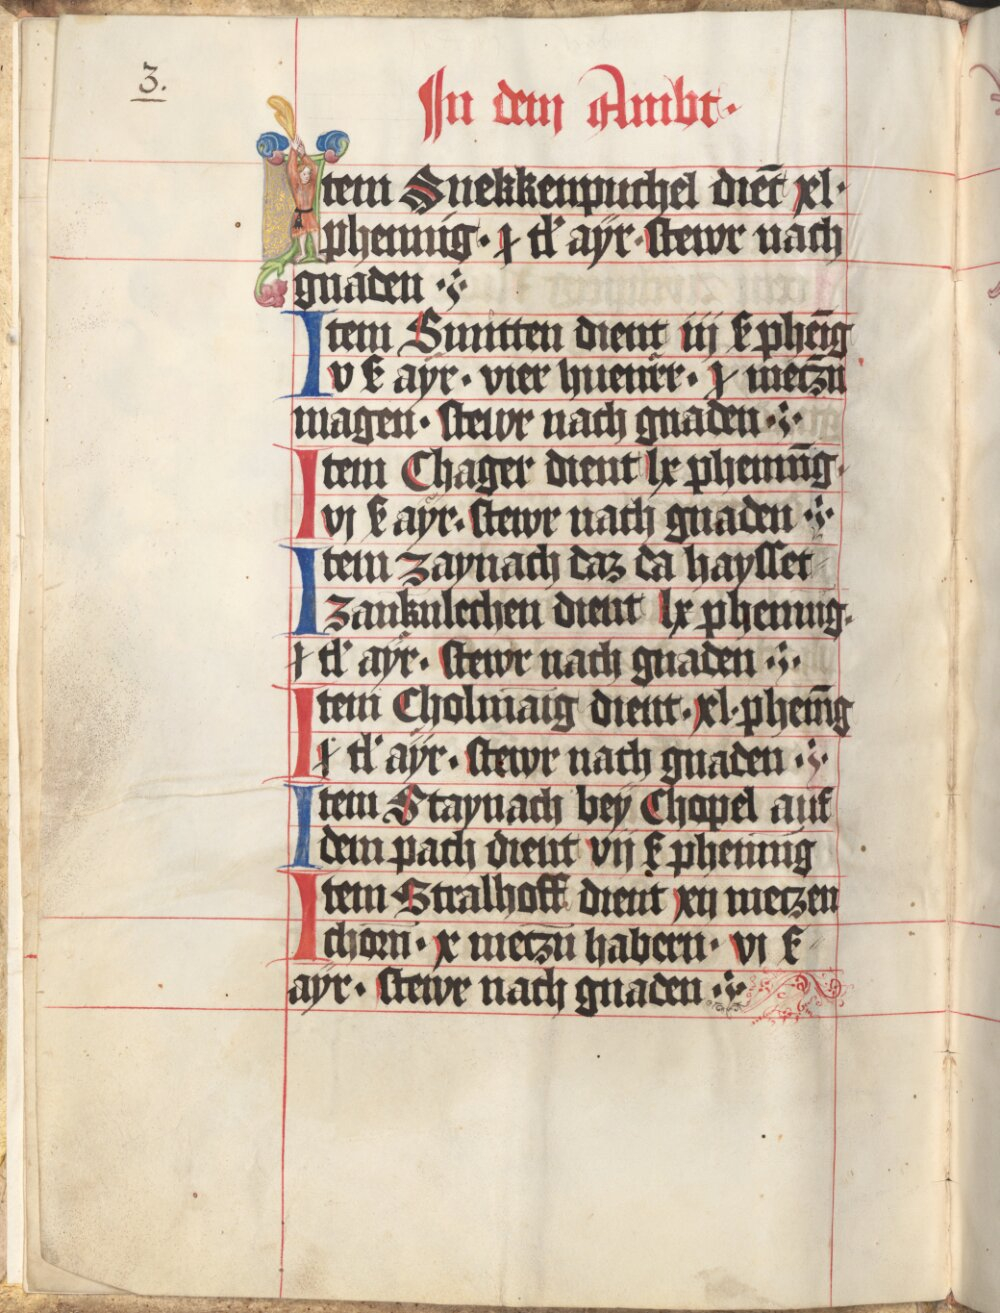 3.
In dem Ambt.
Item Snekkenpuchel dient xl.
phennig. x tl' aÿr. stewr nach
gnaden
Item Sunten dient iij ß phenīg
v ß aÿr. vier huener. x meczn
magen. stewr nach gnaden
Item Chager dient lx phennīg.
vj ß aÿr. stewr nach gnaden
Item Zaynach daz da haysset
Zanknlechen dient lx phennig.
x tl' aÿr. stewr nach gnaden
Item Cholmaig dient. xl. phenīg
x tl' aÿr. stewr nach gnaden
Item Staynach beÿ Chopel auf
dem pach dient vij ß phennīg
Item Stralhoff dient xij meczen
chorn. x meczn habern. vj ß
aÿr. stewr nach gnaden